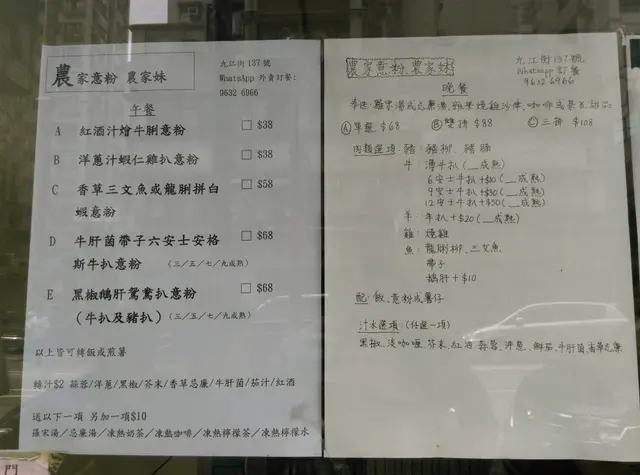 農家意粉 農家妹
九江街137號
WhatsApp 外賣訂餐:
9632 6966
午餐
A 紅酒汁燴牛脷意粉 $38
B 洋蔥汁蝦仁雞扒意粉 $38
C 香草三文魚或龍脷拼白 $58
蝦意粉
D 牛肝菌帶子六安士安格 $68
斯牛扒意粉 (三/五/七/九成熟)
E 黑椒鵝肝鴛鴦扒意粉 $68
(牛扒及豬扒) (三/五/七/九成熟)
以上皆可轉飯或煎薯
轉汁$2 蒜蓉/洋蔥/黑椒/芥末/香草忌廉/牛肝菌/茄汁/紅酒
送以下一項 另加一項$10
羅宋湯/忌廉湯/凍熱奶茶/凍熱咖啡/凍熱檸檬茶/凍熱檸檬水
門
農家意粉 農家妹
九江街137號
Whatsapp 訂餐
9632 6966
晚餐
羅宋湯或忌廉湯, 粟米燒雞沙律, 咖啡或茶或甜品
Ⓐ單飛 $68 Ⓑ雙拼 $88 Ⓒ三拼 $108
肉類選項: 豬: 豬柳、豬腸
牛: 薄牛扒 (__成熟)
6安士牛扒+$10 (__成熟)
9安士牛扒+$30 (__成熟)
12安士牛扒+$50 (__成熟)
羊: 羊扒+$20 (__成熟)
雞: 燒雞
魚: 龍脷柳、三文魚
帶子
鵝肝+$10
配: 飯、意粉或薯仔
汁水選項: (任選一項)
黑椒、淡咖喱、芥末、紅酒、蒜蓉、洋蔥、鮮茄、牛肝菌、香草忌廉